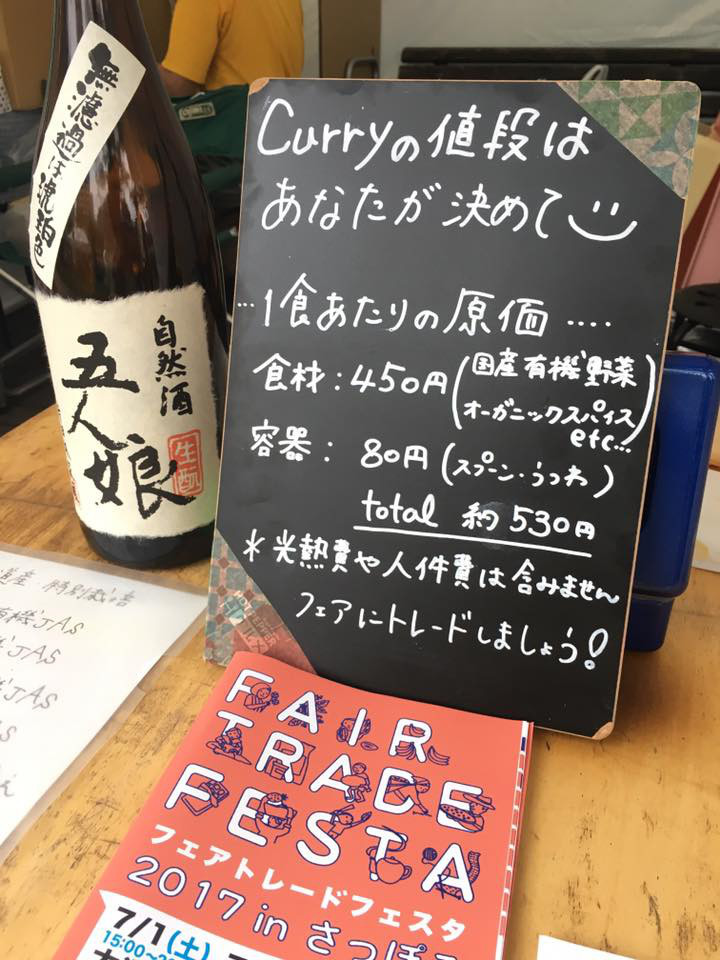 無濾過は琥珀色
自然酒
五人娘
生酛
Curryの値段は
あなたが決めて
…1食あたりの原価‥‥
食材：450円(国産有機野菜
オーガニックスパイス
etc…)
容器：80円(スプーン・うつわ)
total 約530円
＊光熱費や人件費は含みません
フェアにトレードしましょう!
道産 特別栽培
有機JAS
JAS
JAS
FAIR
TRADE
FESTA
フェアトレードフェスタ
2017 in さっぽろ
7/1(土)
15:00~